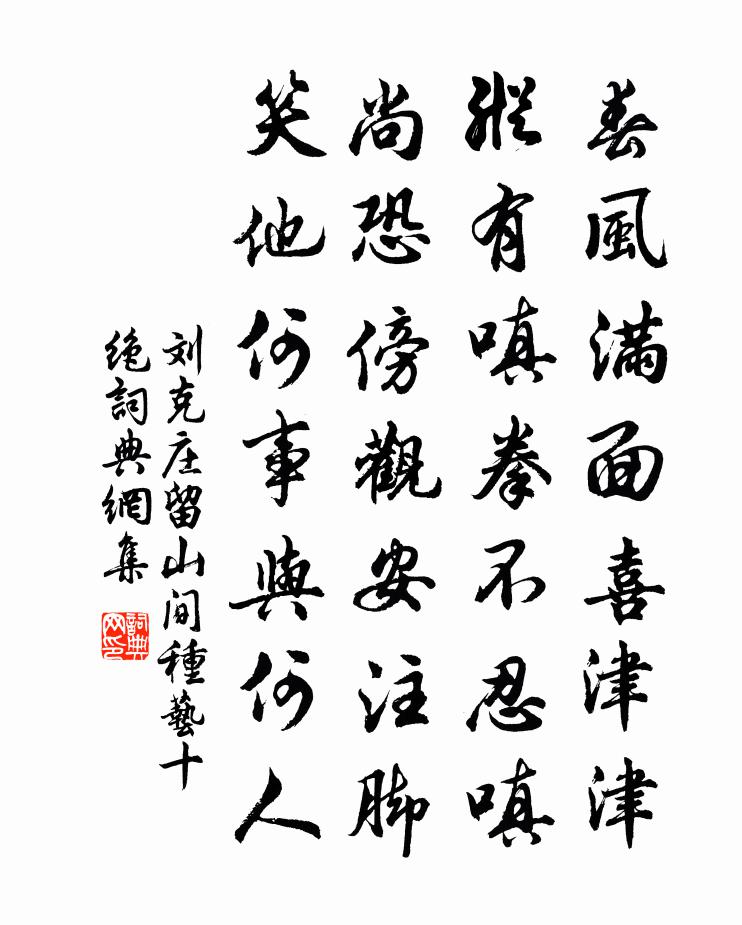 春風滿面喜津津
縱有嗔拳不忍嗔
尚恐傍觀安注脚
笑他何事與何人
刘克庄留山间種藝十
绝詞典網集
詞典网印